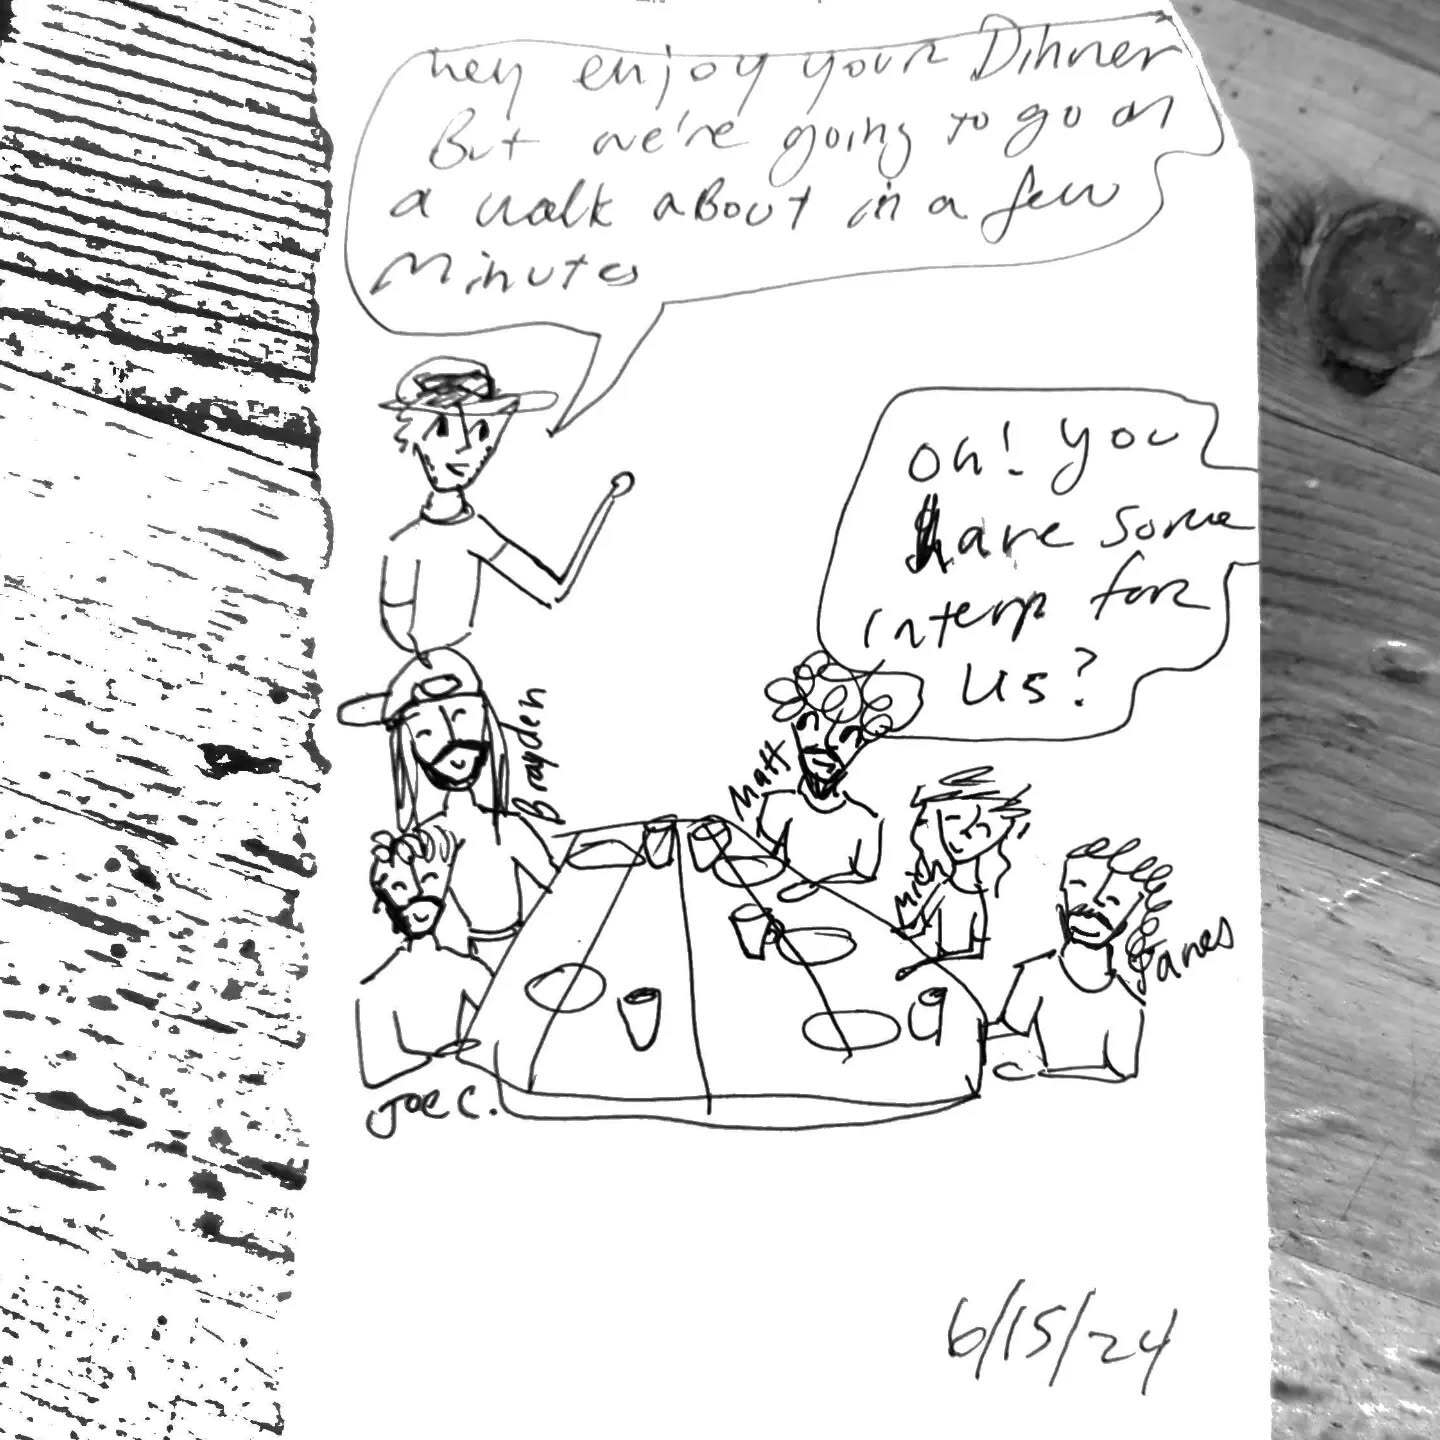 hey enjoy your Dinner
But we're going to go on
a walk about in a few
Minutes
Oh! you
have some
interp for
us?
Brayden
Matt
Mich
James
Joe C.
6/15/24